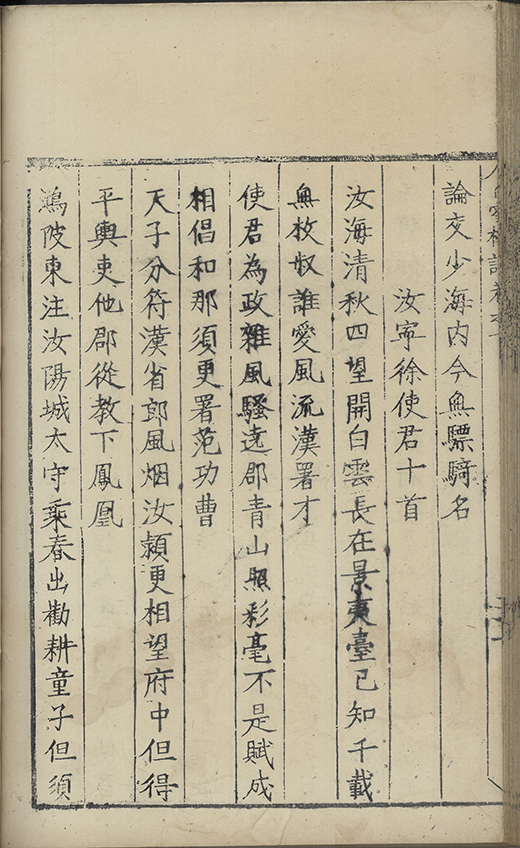 論交少海内今無驃騎名
汝寧徐使君十首
汝海清秋四望開白雲長在景夷臺已知千載
無枚奴誰愛風流漢署才
使君為政雜風騷遠郡青山照彩毫不是賦成
相倡和那須更署范功曹
天子分符漢省郎風烟汝潁更相望府中但得
平輿吏他郡從教下鳳凰
鴻陂東注汝陽城太守乘春出勸耕童子但須